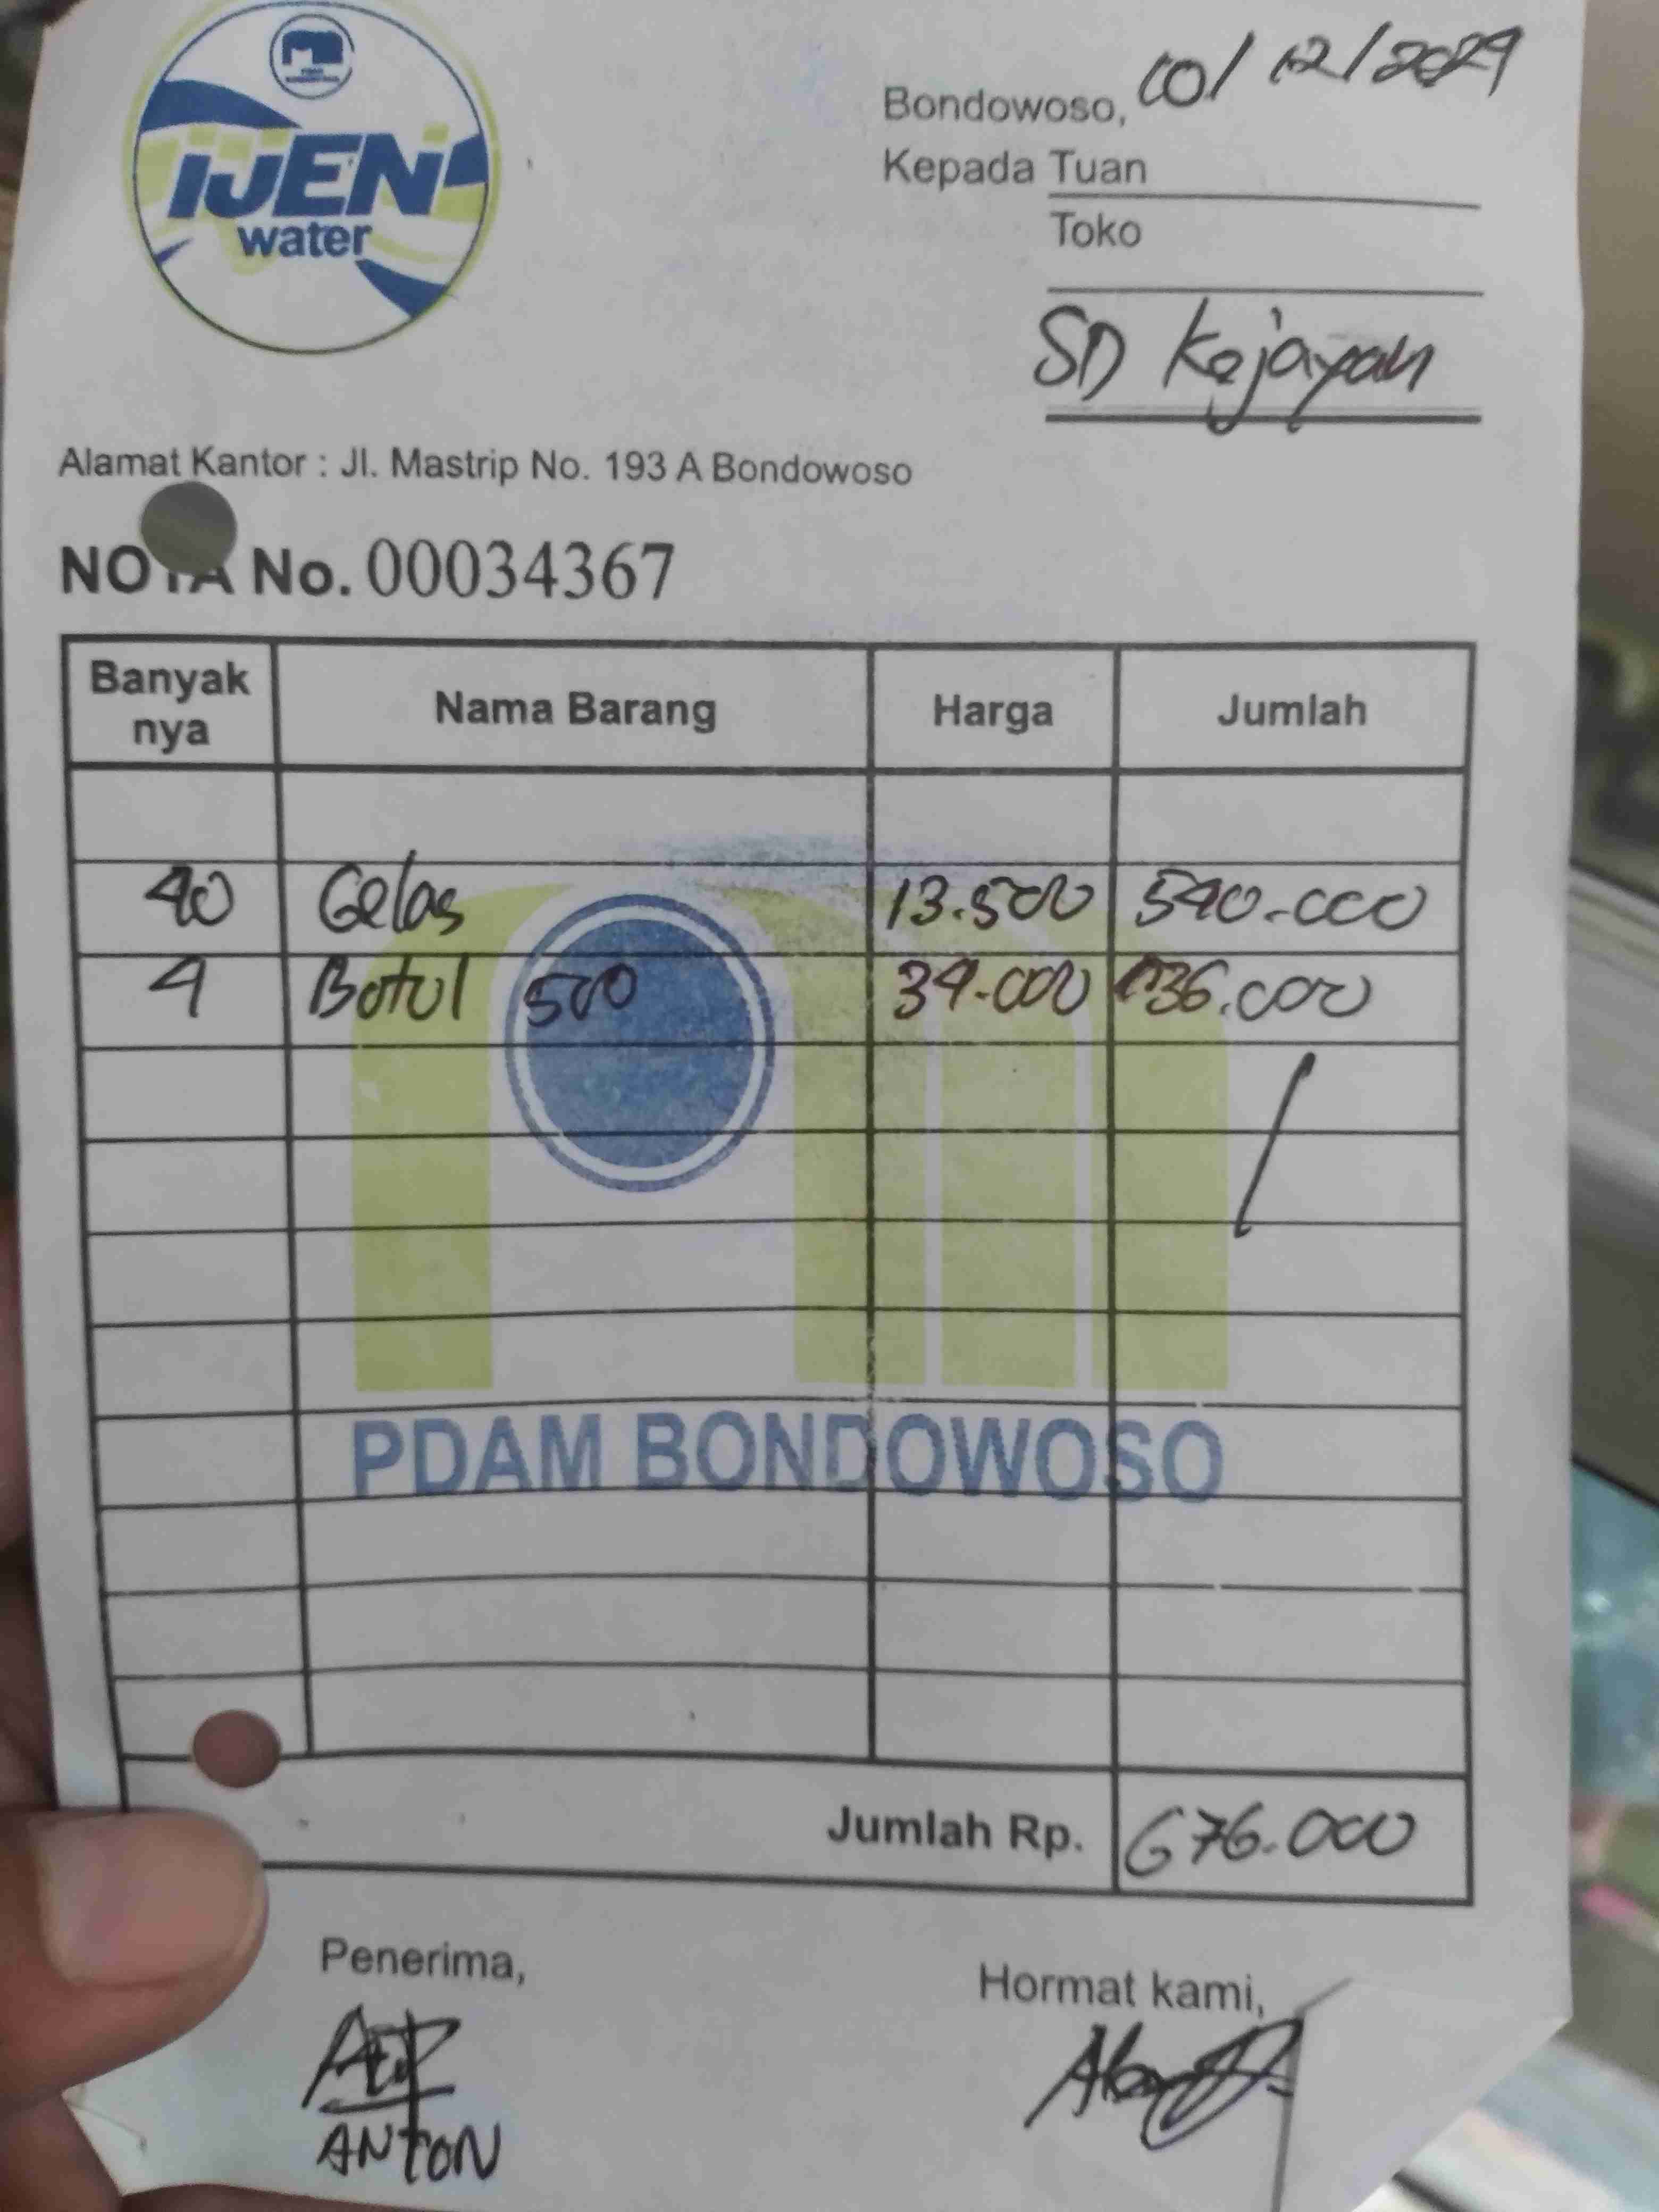 iJEN
water
Bondowoso, 10/12/2024
Kepada Tuan
Toko
SD Kejayan
Alamat Kantor : Jl. Mastrip No. 193 A Bondowoso
NOTA No. 00034367
Banyak nya Nama Barang Harga Jumlah
40 Gelas 13.500 540.000
4 Botol 500 34.000 136.000
PDAM BONDOWOSO
Jumlah Rp. 676.000
Penerima,
Hormat kami,
ANTON